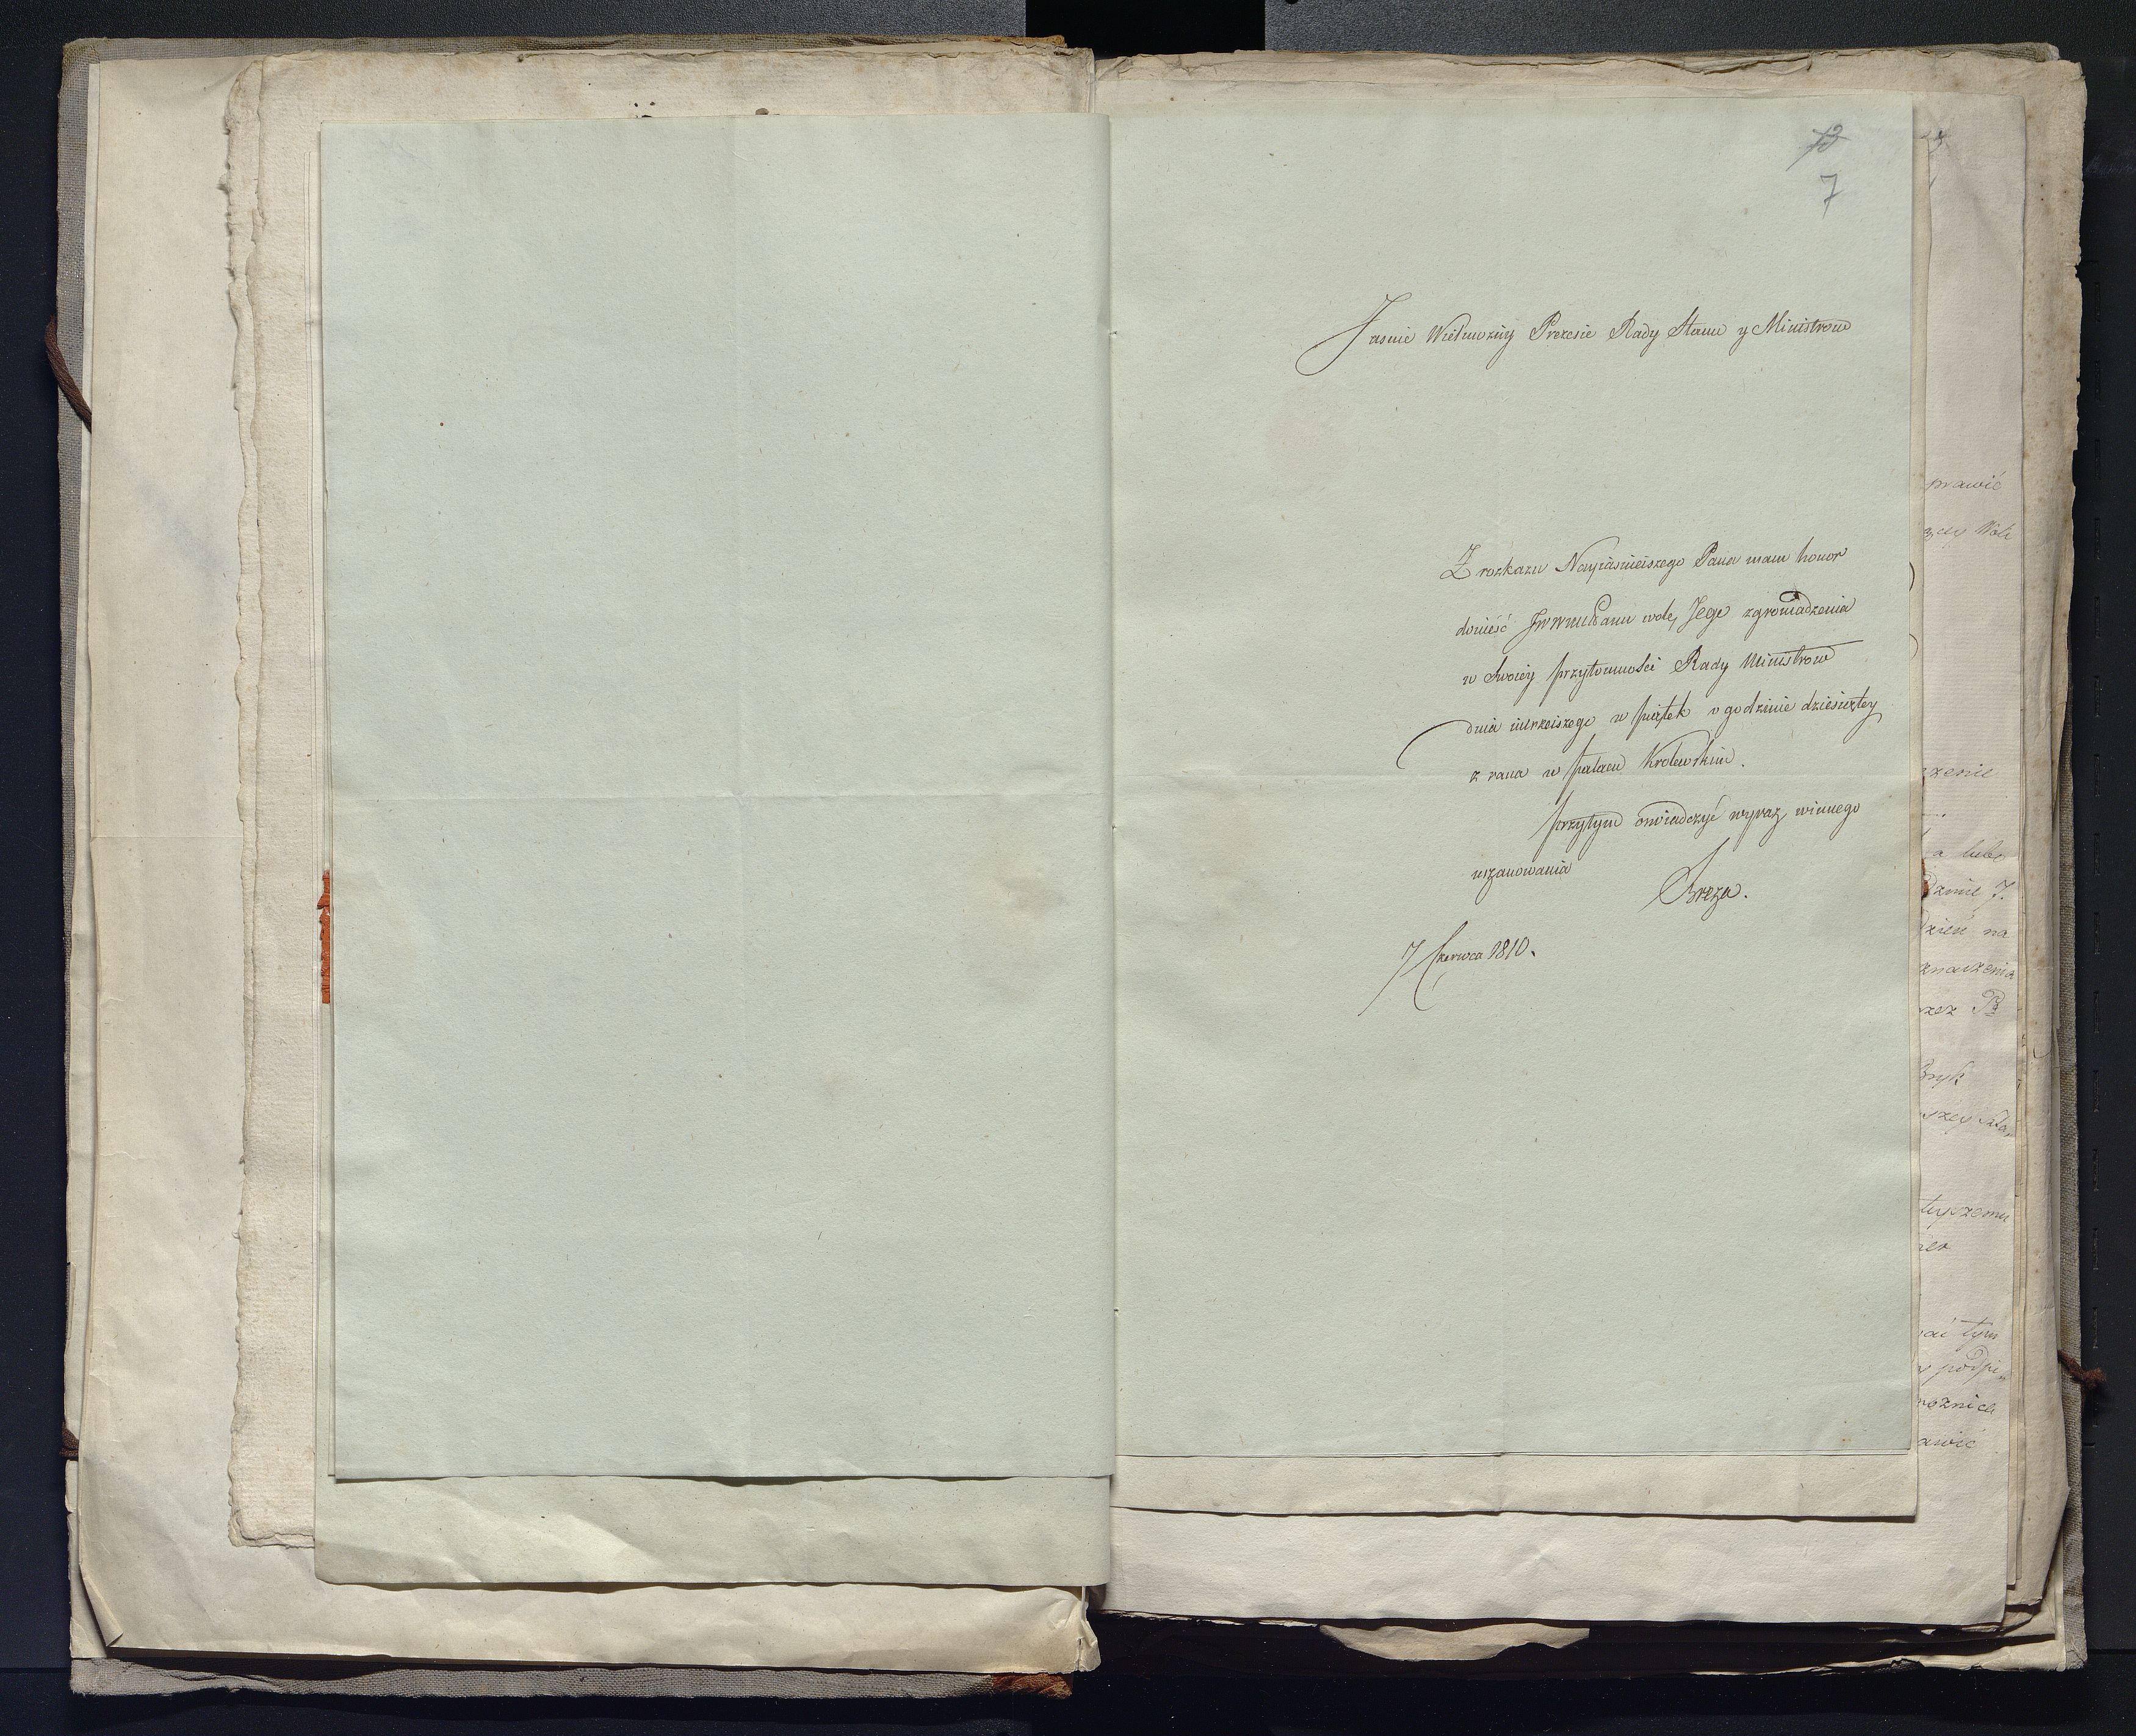 13
7
Jasnie Wielmożny Prezesie Rady Stanu y Ministrow
Z rozkazu Nayiaśnieiszego Pana mam honor
donieść JWWmuPanu wolę Jego zgromadzenia
w Swoiey przytomności Rady Ministrow
dnia iutrzeiszego w piątek o godzinie dziesiątey
z rana w pałacu Krolewskim.
przytym oświadczyć wyraz winnego
uszanowania
Breza.
7 Czerwca 1810.
prawić
zenie
a lubo
dzień na
znaczenia
rzez
tym
podpi„
awić